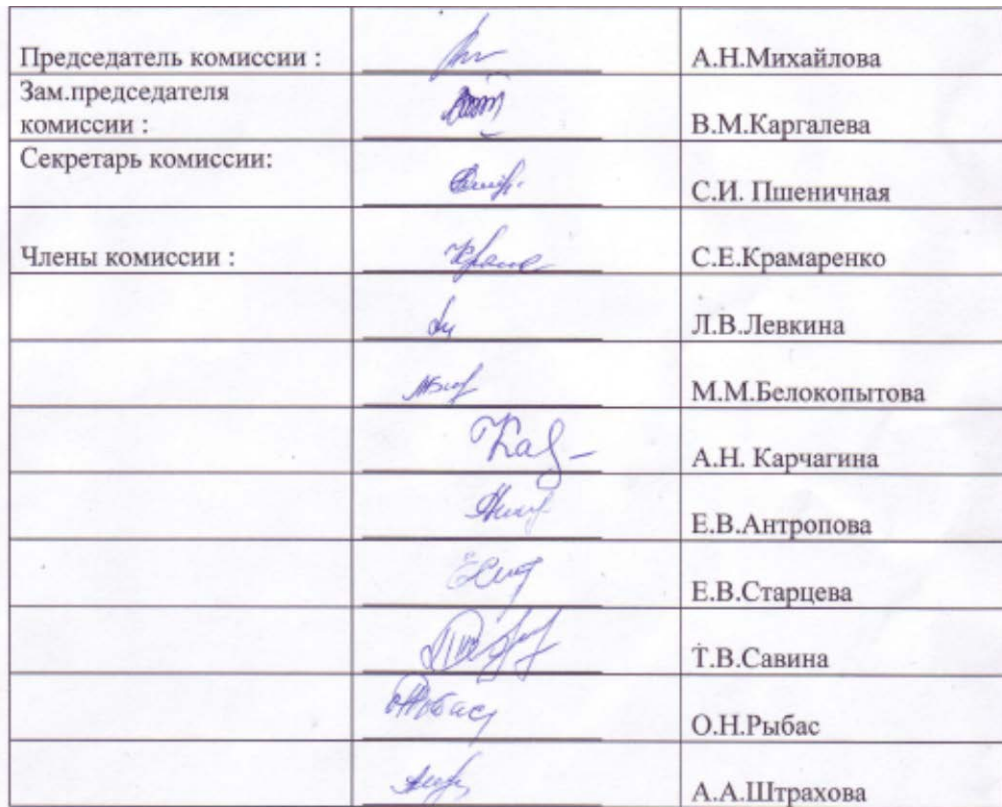 Председатель комиссии : А.Н.Михайлова
Зам.председателя
комиссии : В.М.Каргалева
Секретарь комиссии:
С.И. Пшеничная
Члены комиссии : С.Е.Крамаренко
Л.В.Левкина
М.М.Белокопытова
А.Н. Карчагина
Е.В.Антропова
Е.В.Старцева
Т.В.Савина
О.Н.Рыбас
А.А.Штрахова